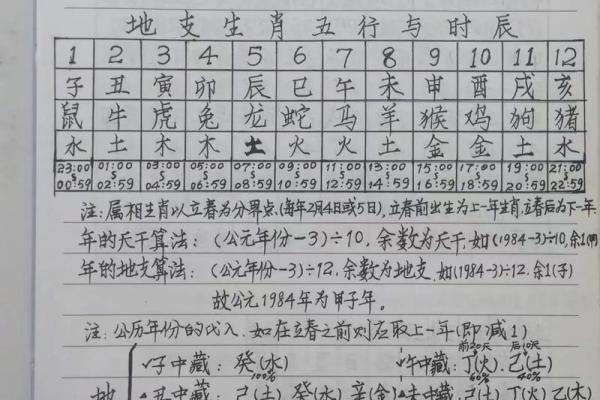 地支生肖五行与时辰
1 2 3 4 5 6 7 8 9 10 11 12
子 丑 寅 卯 辰 巳 午 未 申 酉 戌 亥
鼠 牛 虎 兔 龙 蛇 马 羊 猴 鸡 狗 猪
水 土 木 木 土 火 火 土 金 金 土 水
23:00 01:00 03:00 05:00 07:00 09:00 11:00 13:00 15:00 17:00 19:00 21:00
00:59 02:59 04:59 06:59 08:59 10:59 12:59 14:59 16:59 18:59 20:59 22:59
注:属相生肖以立春为分界点,(每年2月4日或5日),立春前出生为上一年生肖,立春后为下一年.
年的天干算法:(公元年份-3)÷10,余数为天干,如(1984-3)÷10,余1(甲)
年的地支算法:(公元年份-3)÷12,余数为地支,如(1984-3)÷12.余1(子)
故公元1984年为甲子年。
注:公历年份的代入,如在立春之前则应取上一年(即减1)
前20天 后10天
子中藏:癸(水) 午中藏:丁(火).己(土)
100% 60% 40%
地 丑中藏:己(土) 癸(水) 辛(金) 未中藏:己(土) 丁(火) 乙(木)